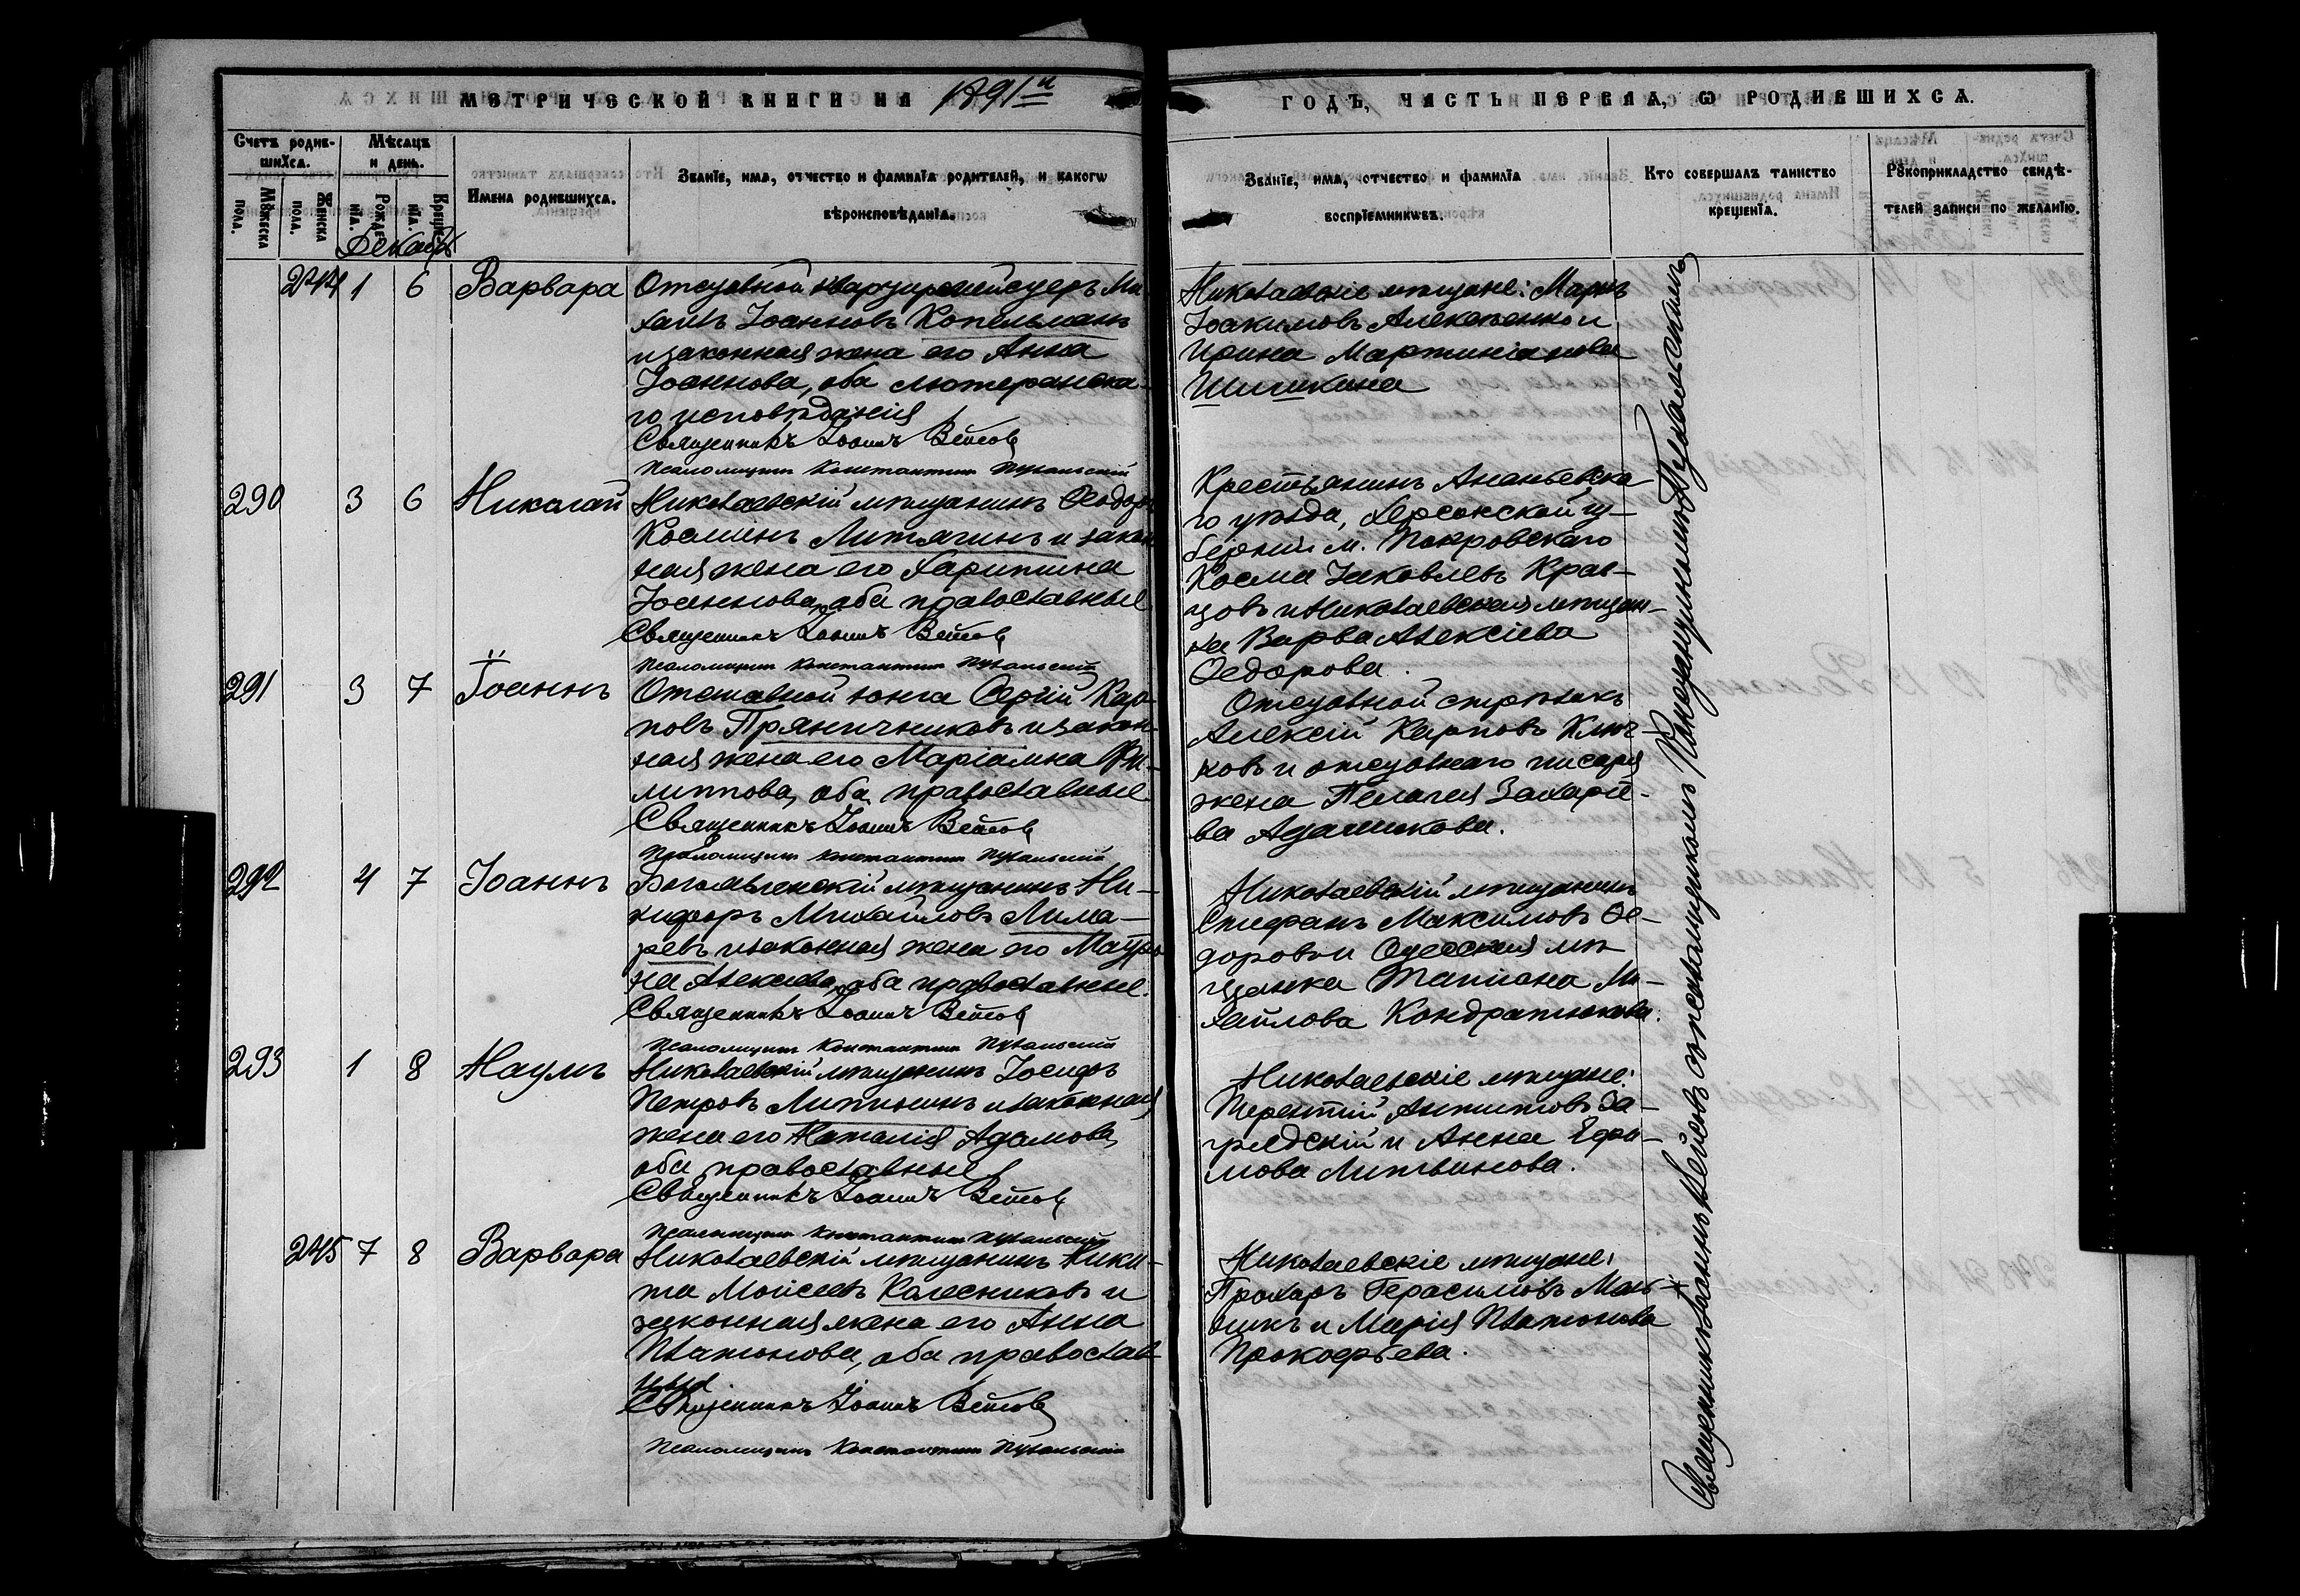 МЕТРИЧЕСКОЙ КНИГИ НА 1891й
ГОДЪ, ЧАСТЬ ПЕРВАЯ, Ѡ РОДИВШИХСѦ.
Счетъ родившихсѧ.
Мѣсацъ и день.
Мꙋжеска пола.
Женска пола.
Рожденїѧ.
Крещенїѧ.
Имена родившихсѧ.
Званїе, имѧ, отчество и фамилїѧ родителей, и какогѡ
вѣроисповѣданїѧ.
Званїе, имѧ, отчество и фамилїѧ
воспрїемникѡвъ.
Кто совершалъ таинство
крещенїѧ.
Рꙋкоприкладство свидѣ-
телей записи по желанїю.
Декабрь
244 1 6 Варвара
Отставной квартирмейстеръ Ми
хаилъ Іоанновъ Копельманъ
и законная жена его Анна
Іоаннова, оба лютеранска-
го исповѣданія
Священникъ Іоаннъ Вейсовъ
Псаломщикъ Константинъ
Николаевскіе мѣщане: Маркъ
Іоакимовъ Алексѣенко и
Ирина Мартиніанова
Шишкина
290 3 6 Николай
Николаевскій мѣщанинъ Ѳеодоръ
Косминъ Литягинъ и закон
ная жена его Харитина
Іоаннова, оба православные
Священникъ Іоаннъ Вейсовъ
Псаломщикъ Константинъ
Крестьянинъ Ананьевска-
го уѣзда, Херсонской гу-
берніи м. Покровскаго
Косма Іаковлевъ Крав-
цовъ и Николаевская мѣщан-
ка Варва Алексіева
Ѳедорова.
291 3 7 Іоаннъ
Отставной юнга Сергій Кар-
повъ Пряничниковъ и закон-
ная жена его Маріамна Фи-
липпова, оба православные
Священникъ Іоаннъ Вейсовъ
Псаломщикъ Константинъ
Отставной стрѣлокъ
Алексій Карповъ Клюг-
ковъ и отставнаго писаря
жена Пелагія Захаріе-
ва Адамчикова.
292 4 7 Іоаннъ
Богоявленскій мѣщанинъ Ни-
кифоръ Михайловъ Лима-
ревъ и законная жена его Матро
на Алексіева, оба православные.
Священникъ Іоаннъ Вейсовъ
Псаломщикъ Константинъ
Николаевскій мѣщанинъ
Стефанъ Максимовъ Ѳе-
доровъ и Одесская мѣ-
щанка Татіана Ми-
хайлова Кондратюкова.
293 1 8 Наумъ
Николаевскій мѣщанинъ Іосифъ
Петровъ и законная
жена его Наталія Адамова,
оба православные
Священникъ Іоаннъ Вейсовъ
Псаломщикъ Константинъ
Николаевскіе мѣщане:
Терентій Антиповъ За-
градскій и Анна Ефи-
мова Литвинова.
245 7 8 Варвара
Николаевскій мѣщанинъ Ники-
та Моисеевъ Колесниковъ и
законная жена его Анна
Платонова, оба православ-
ные.
Священникъ Іоаннъ Вейсовъ
Псаломщикъ Константинъ
Николаевскіе мѣщане:
Прохоръ Герасимовъ Мель-
никъ и Марія Платонова
Прокофьева.
Священникъ Іоаннъ Вейсовъ съ псаломщикомъ Константиномъ